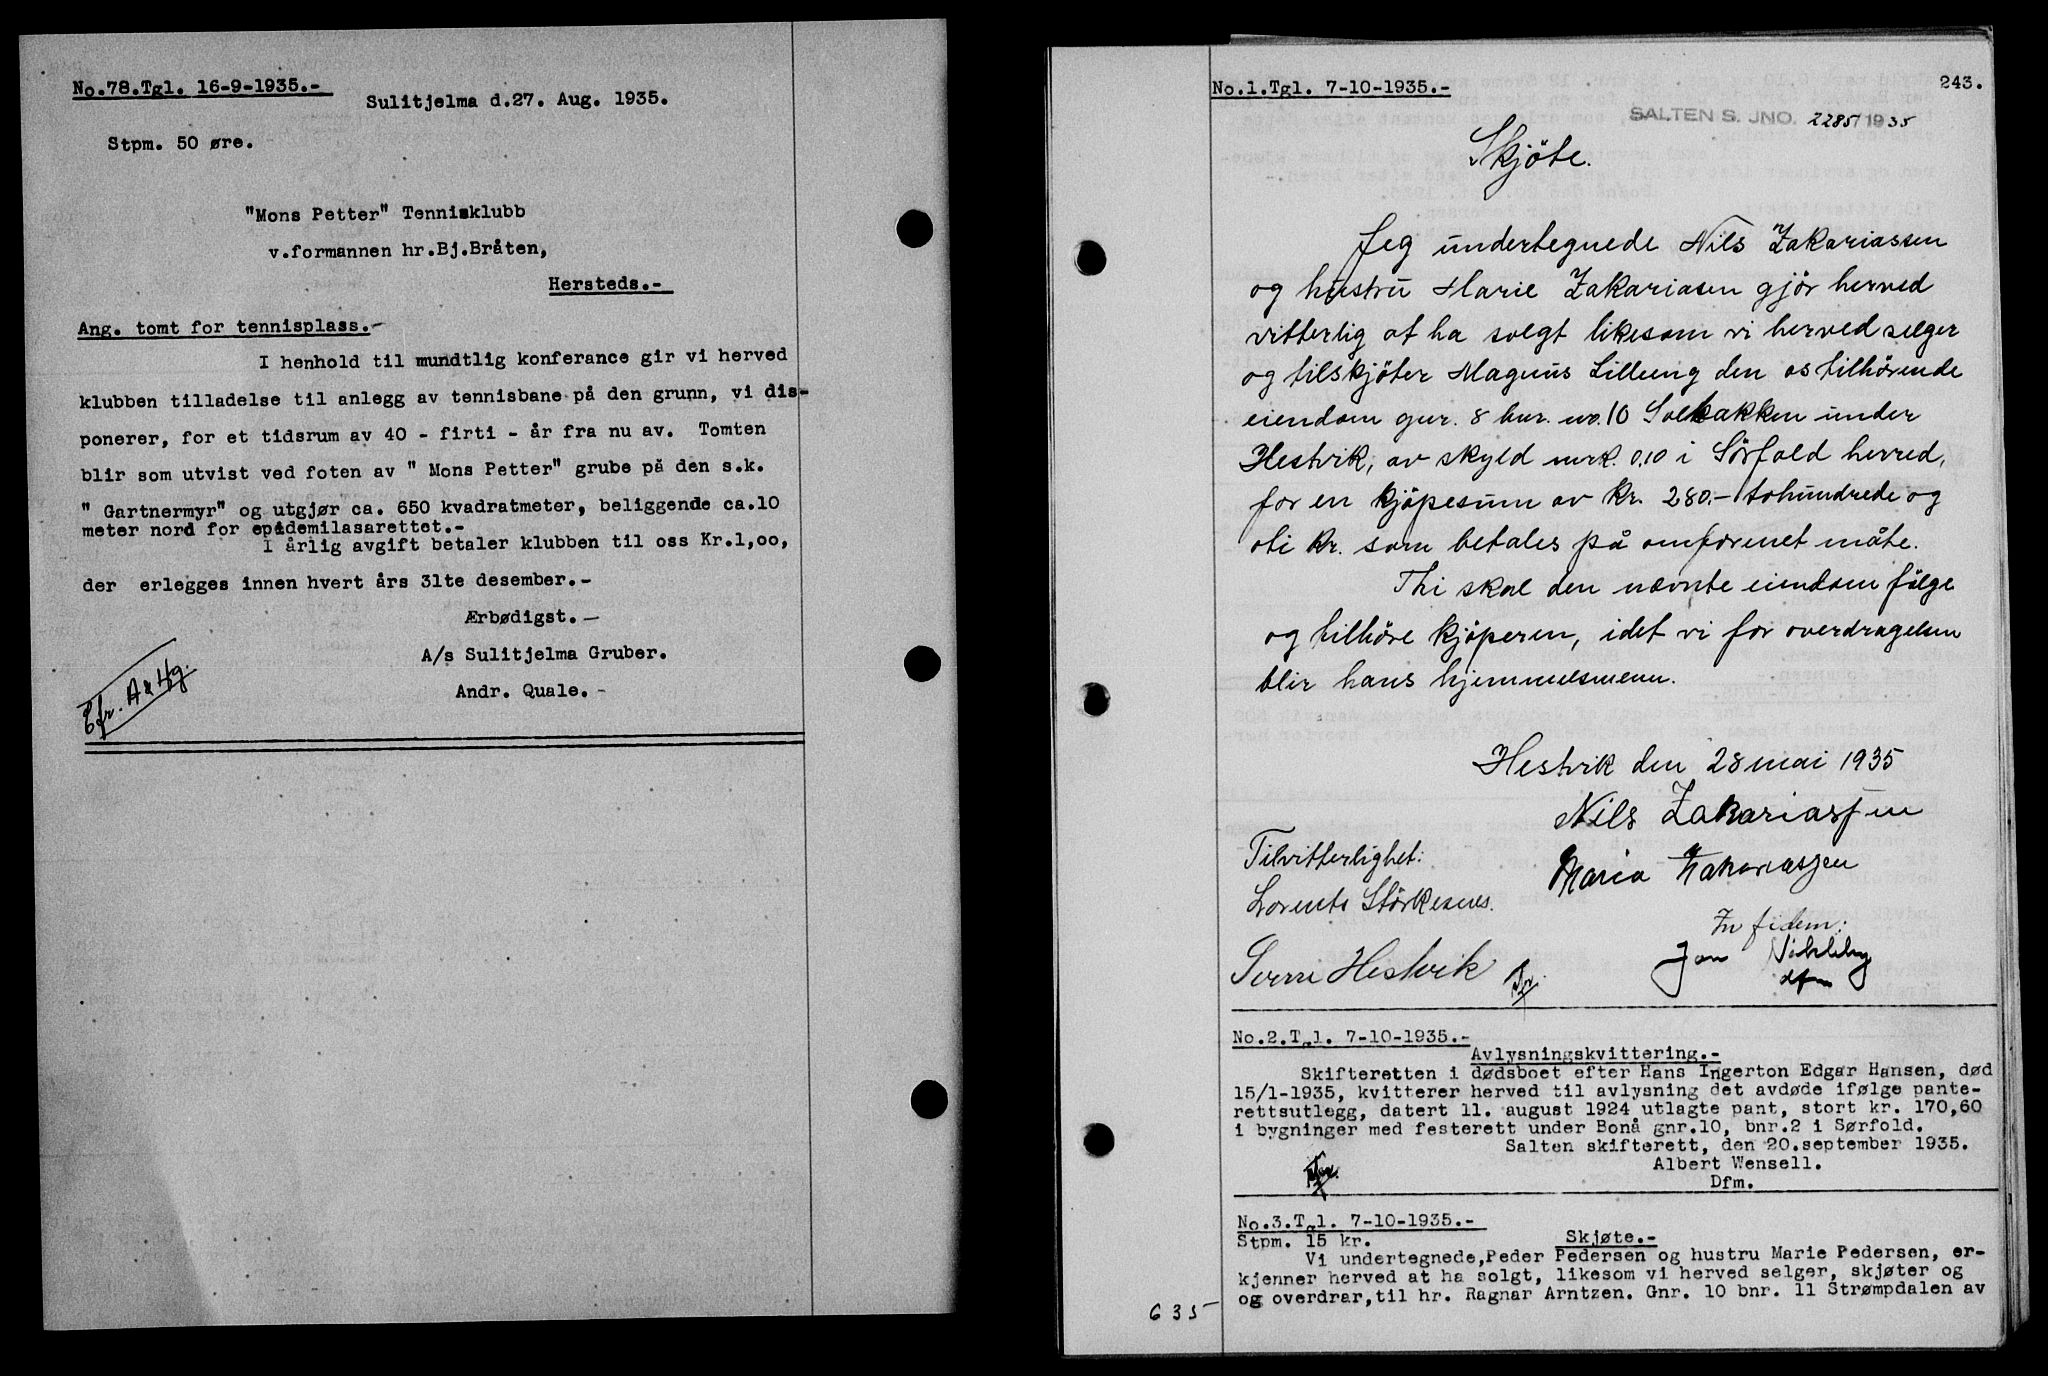 No.78.Tgl. 16-9-1935.-
Sulitjelma d.27. Aug. 1935.
Stpm. 50 øre.
"Mons Petter" Tennisklubb
v.formannen hr.Bj.Bråten,
Hersteds.-
Ang. tomt for tennisplass.-
I henhold til mundtlig konferance gir vi herved
klubben tilladelse til anlegg av tennisbane på den grunn, vi dis-
ponerer, for et tidsrum av 40 - firti - år fra nu av. Tomten
blir som utvist ved foten av " Mons Petter" grube på den s.k.
" Gartnermyr" og utgjør ca. 650 kvadratmeter, beliggende ca.10
meter nord for epidemilasarettet.-
I årlig avgift betaler klubben til oss Kr.1,oo,
der erlegges innen hvert års 31te desember.-
Ærbødigst.-
A/s Sulitjelma Gruber.
Andr. Quale.-
No.1.Tgl. 7-10-1935.-
243.
SALTEN S. JNO. 2285/1935
Skjöte.
Jeg undertegnede Nils Zakariassen
og hustru Marie Zakariasen gjör herved
vitterlig at ha solgt likesom vi herved selger
og tilskjöter Magnus Lilleng den os tilhörende
eiendom gnr. 8 bnr. no. 10 Solbakken under
Hestvik, av skyld mrk. 0,10 i Sörfold herred,
for en kjöpesum av kr. 280.- tohundrede og
oti kr. som betales på omforenet måte.
Thi skal den nævnte eiendom fölge
og tilhöre kjöperen, idet vi for overdragelsen
blir hans hjemmelsmenn.
Hestvik den 28 mai 1935
Nils Zakariassen
Maria Zakariassen
Tilvitterlighet:
Lorents Störkesnes.
In fidem:
Hestvik
Jon
dfm
No.2.Tgl. 7-10-1935.-
Avlysningskvittering.-
Skifteretten i dødsboet efter Hans Ingerton Edgar Hansen, død
15/1-1935, kvitterer herved til avlysning det avdøde ifølge pante-
rettsutlegg, datert 11. august 1924 utlagte pant, stort kr. 170,60
i bygninger med festerett under Bonå gnr.10, bnr.2 i Sørfold.
Salten skifterett, den 20.september 1935.
Albert Wensell.
Dfm.
No.3.Tgl. 7-10-1935.-
Stpm. 15 kr.
Skjøte.-
Vi undertegnede,Peder Pedersen og hustru Marie Pedersen, er-
kjenner herved at ha solgt, likesom vi herved selger, skjøter og
og overdrar,til hr. Ragnar Arntzen. Gnr. 10 bnr. 11 Strømpdalen av
635